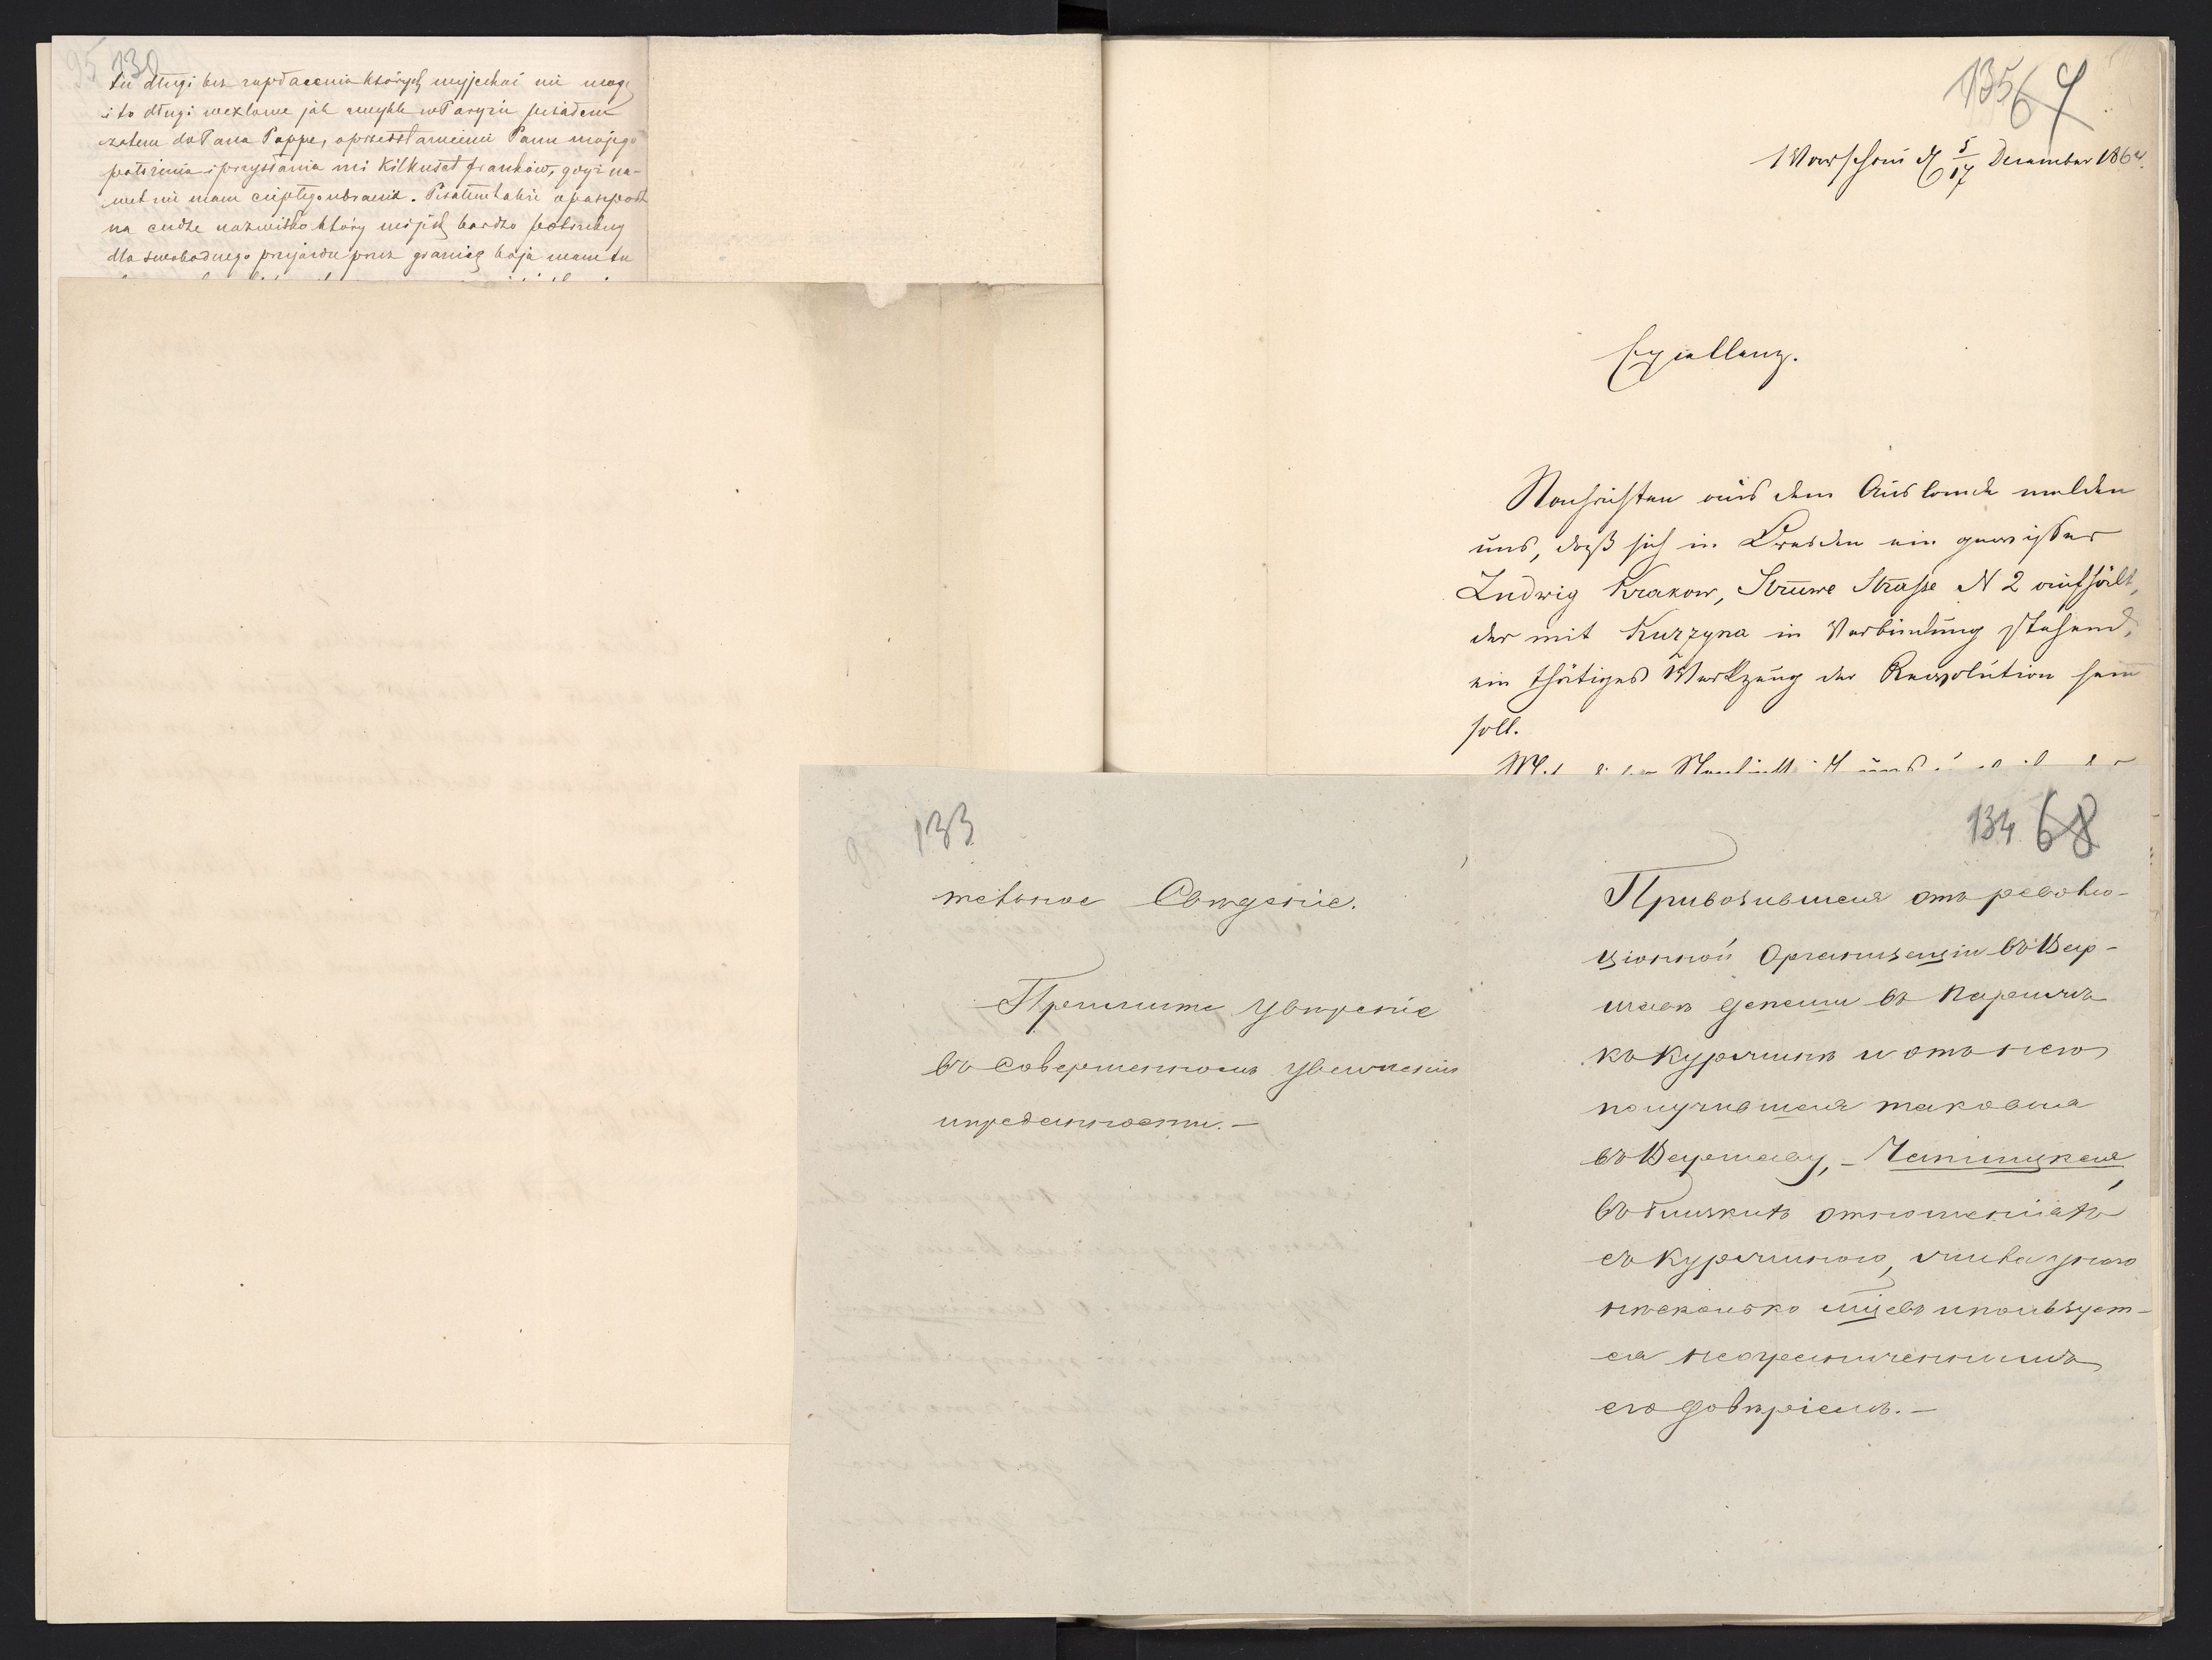 95 130
tu długi bez zapłacenia których wyjechać nie mogę
i to długi wexlowe jak zwykle w Paryżu pisałem
zatem do Pana Poppe, o przedstawienie Panu mojego
położenia i przysłania mi kilkuset franków, gdyż na-
wet nie mam ciepłego ubrania. Pisałem także o paszport
na cudze nazwisko który mi jest bardzo potrzebny
dla swobodnego przejazdu przez granicę bo ja mam tu
135 67
Warschau d 5/17 December 186
Excellenz.
Nachrichten aus dem Auslande melden
uns, daß sich in Dresden ein gewisser
Ludwig Krakow, Struwe Straße N 2 aufhält,
der mit Kurzyna in Verbindung stehend,
ein thätiges Werkzeug der Revolution sein
soll.
133
тельное Свѣдѣніе.
Примите увѣреніе
въ совершенномъ уваженіи
и преданности.—
134 68
Привозившая отъ револю-
ціонной Организаціи въ Вар-
шавѣ депеши въ Парижъ
къ Куржинѣ и отъ него
получившая таковыя
въ Варшаву, – Чаплицкая,
въ близкихъ отношеніяхъ
съ Куржиною, жила у него
нѣсколько мѣсяцевъ и пользует-
ся неограниченнымъ
его довѣріемъ.—